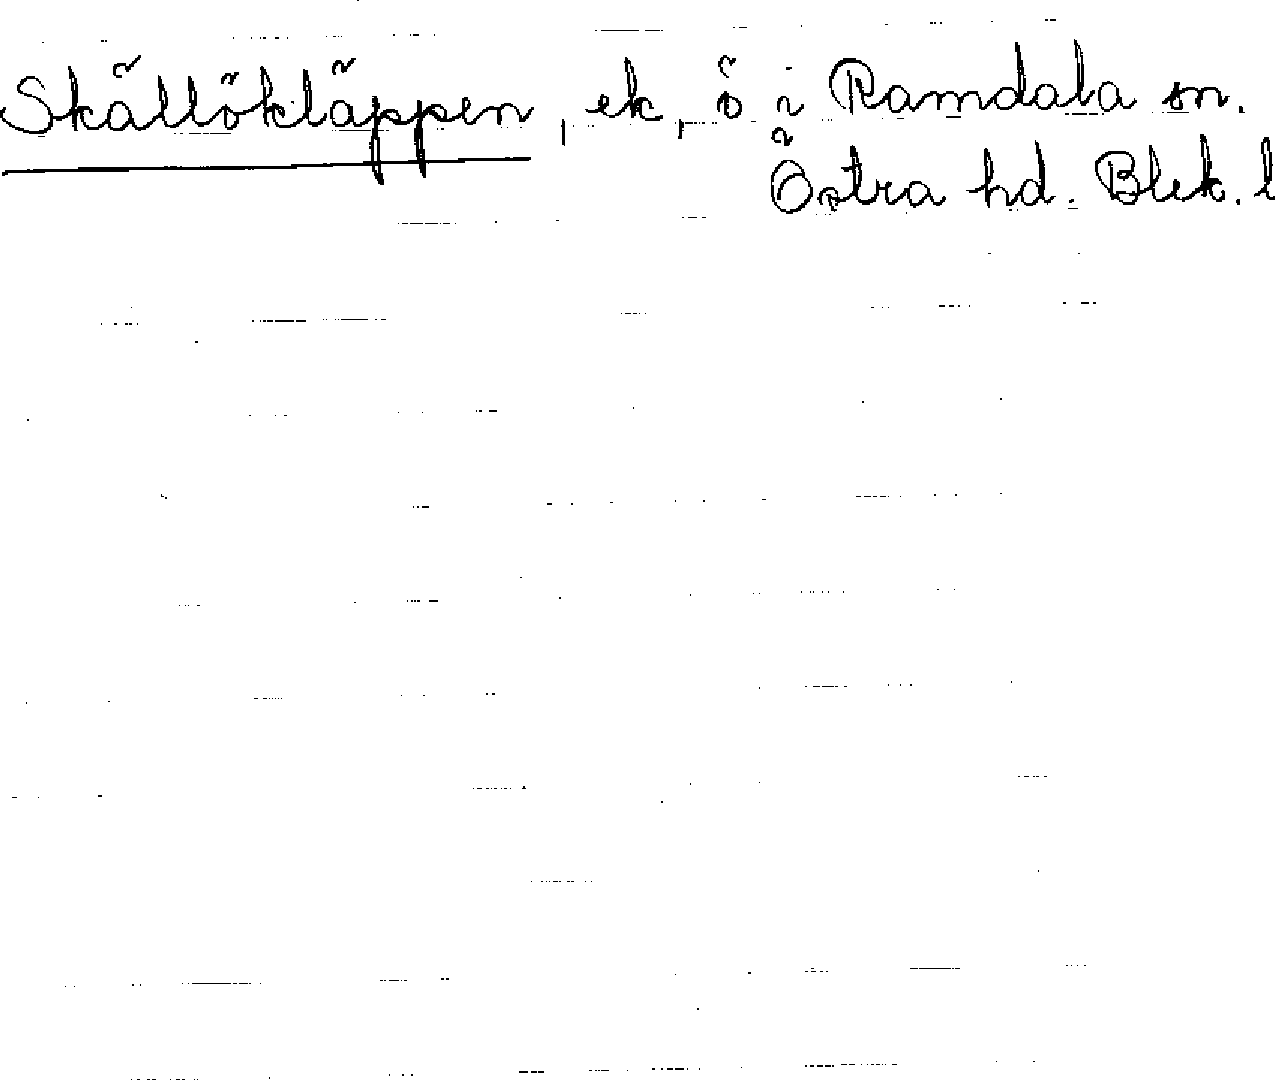 Skällökläppen, ek, ö i Ramdala sn.
Östra hd. Blek. l